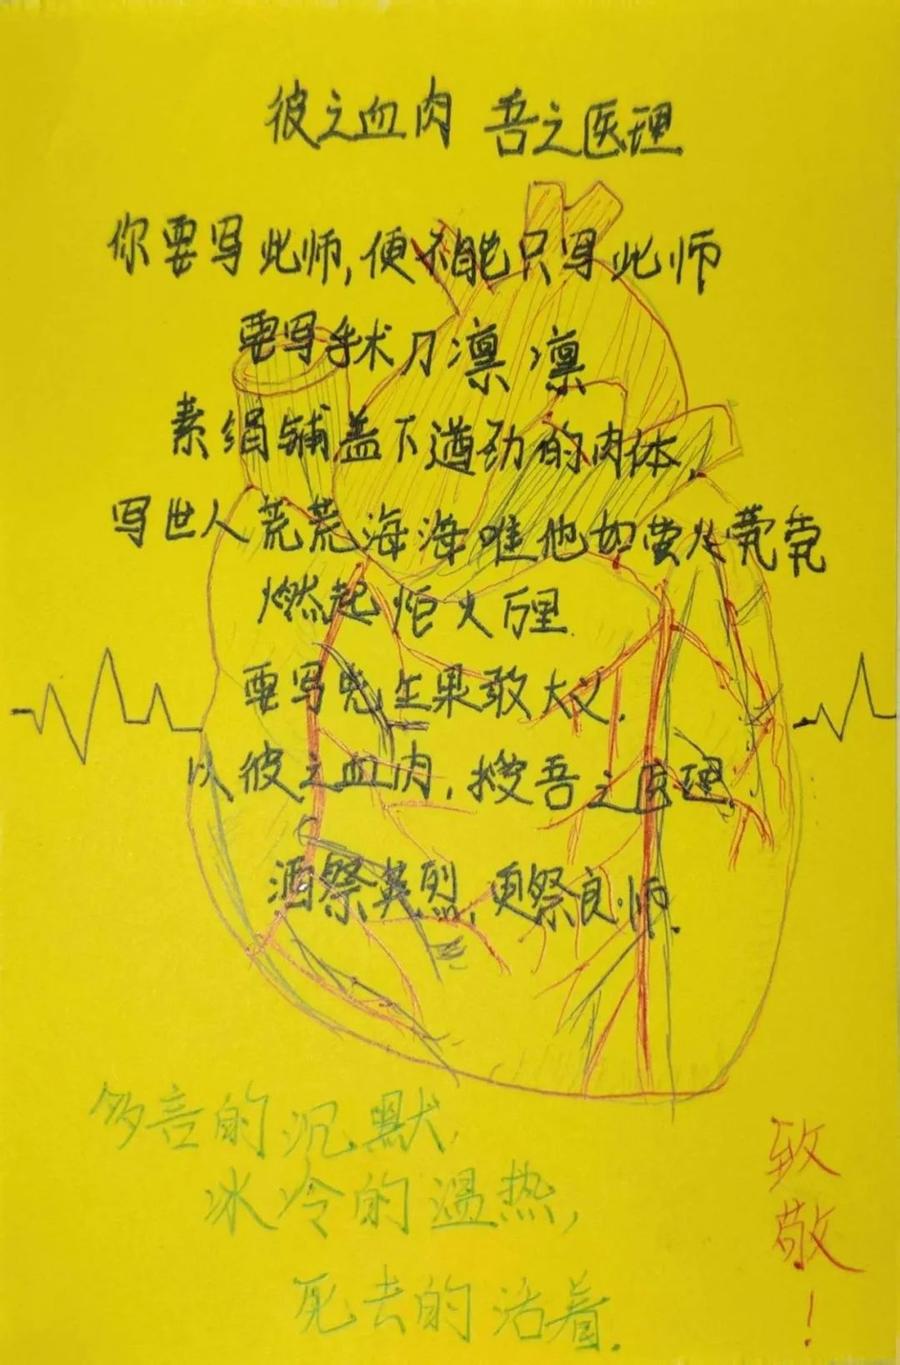 彼之血肉 吾之医理
你要写此师,便不能只写此师
要写手术刀凛凛
素绢铺盖下遒劲的肉体,
写世人荒荒海海唯他如萤火茕茕
燃起炬火万里.
要写先生果敢大义.
以彼之血肉,授吾之医理.
酒祭英烈,更祭良师.
多言的沉默,
冰冷的温热,
死去的活着.
致敬!